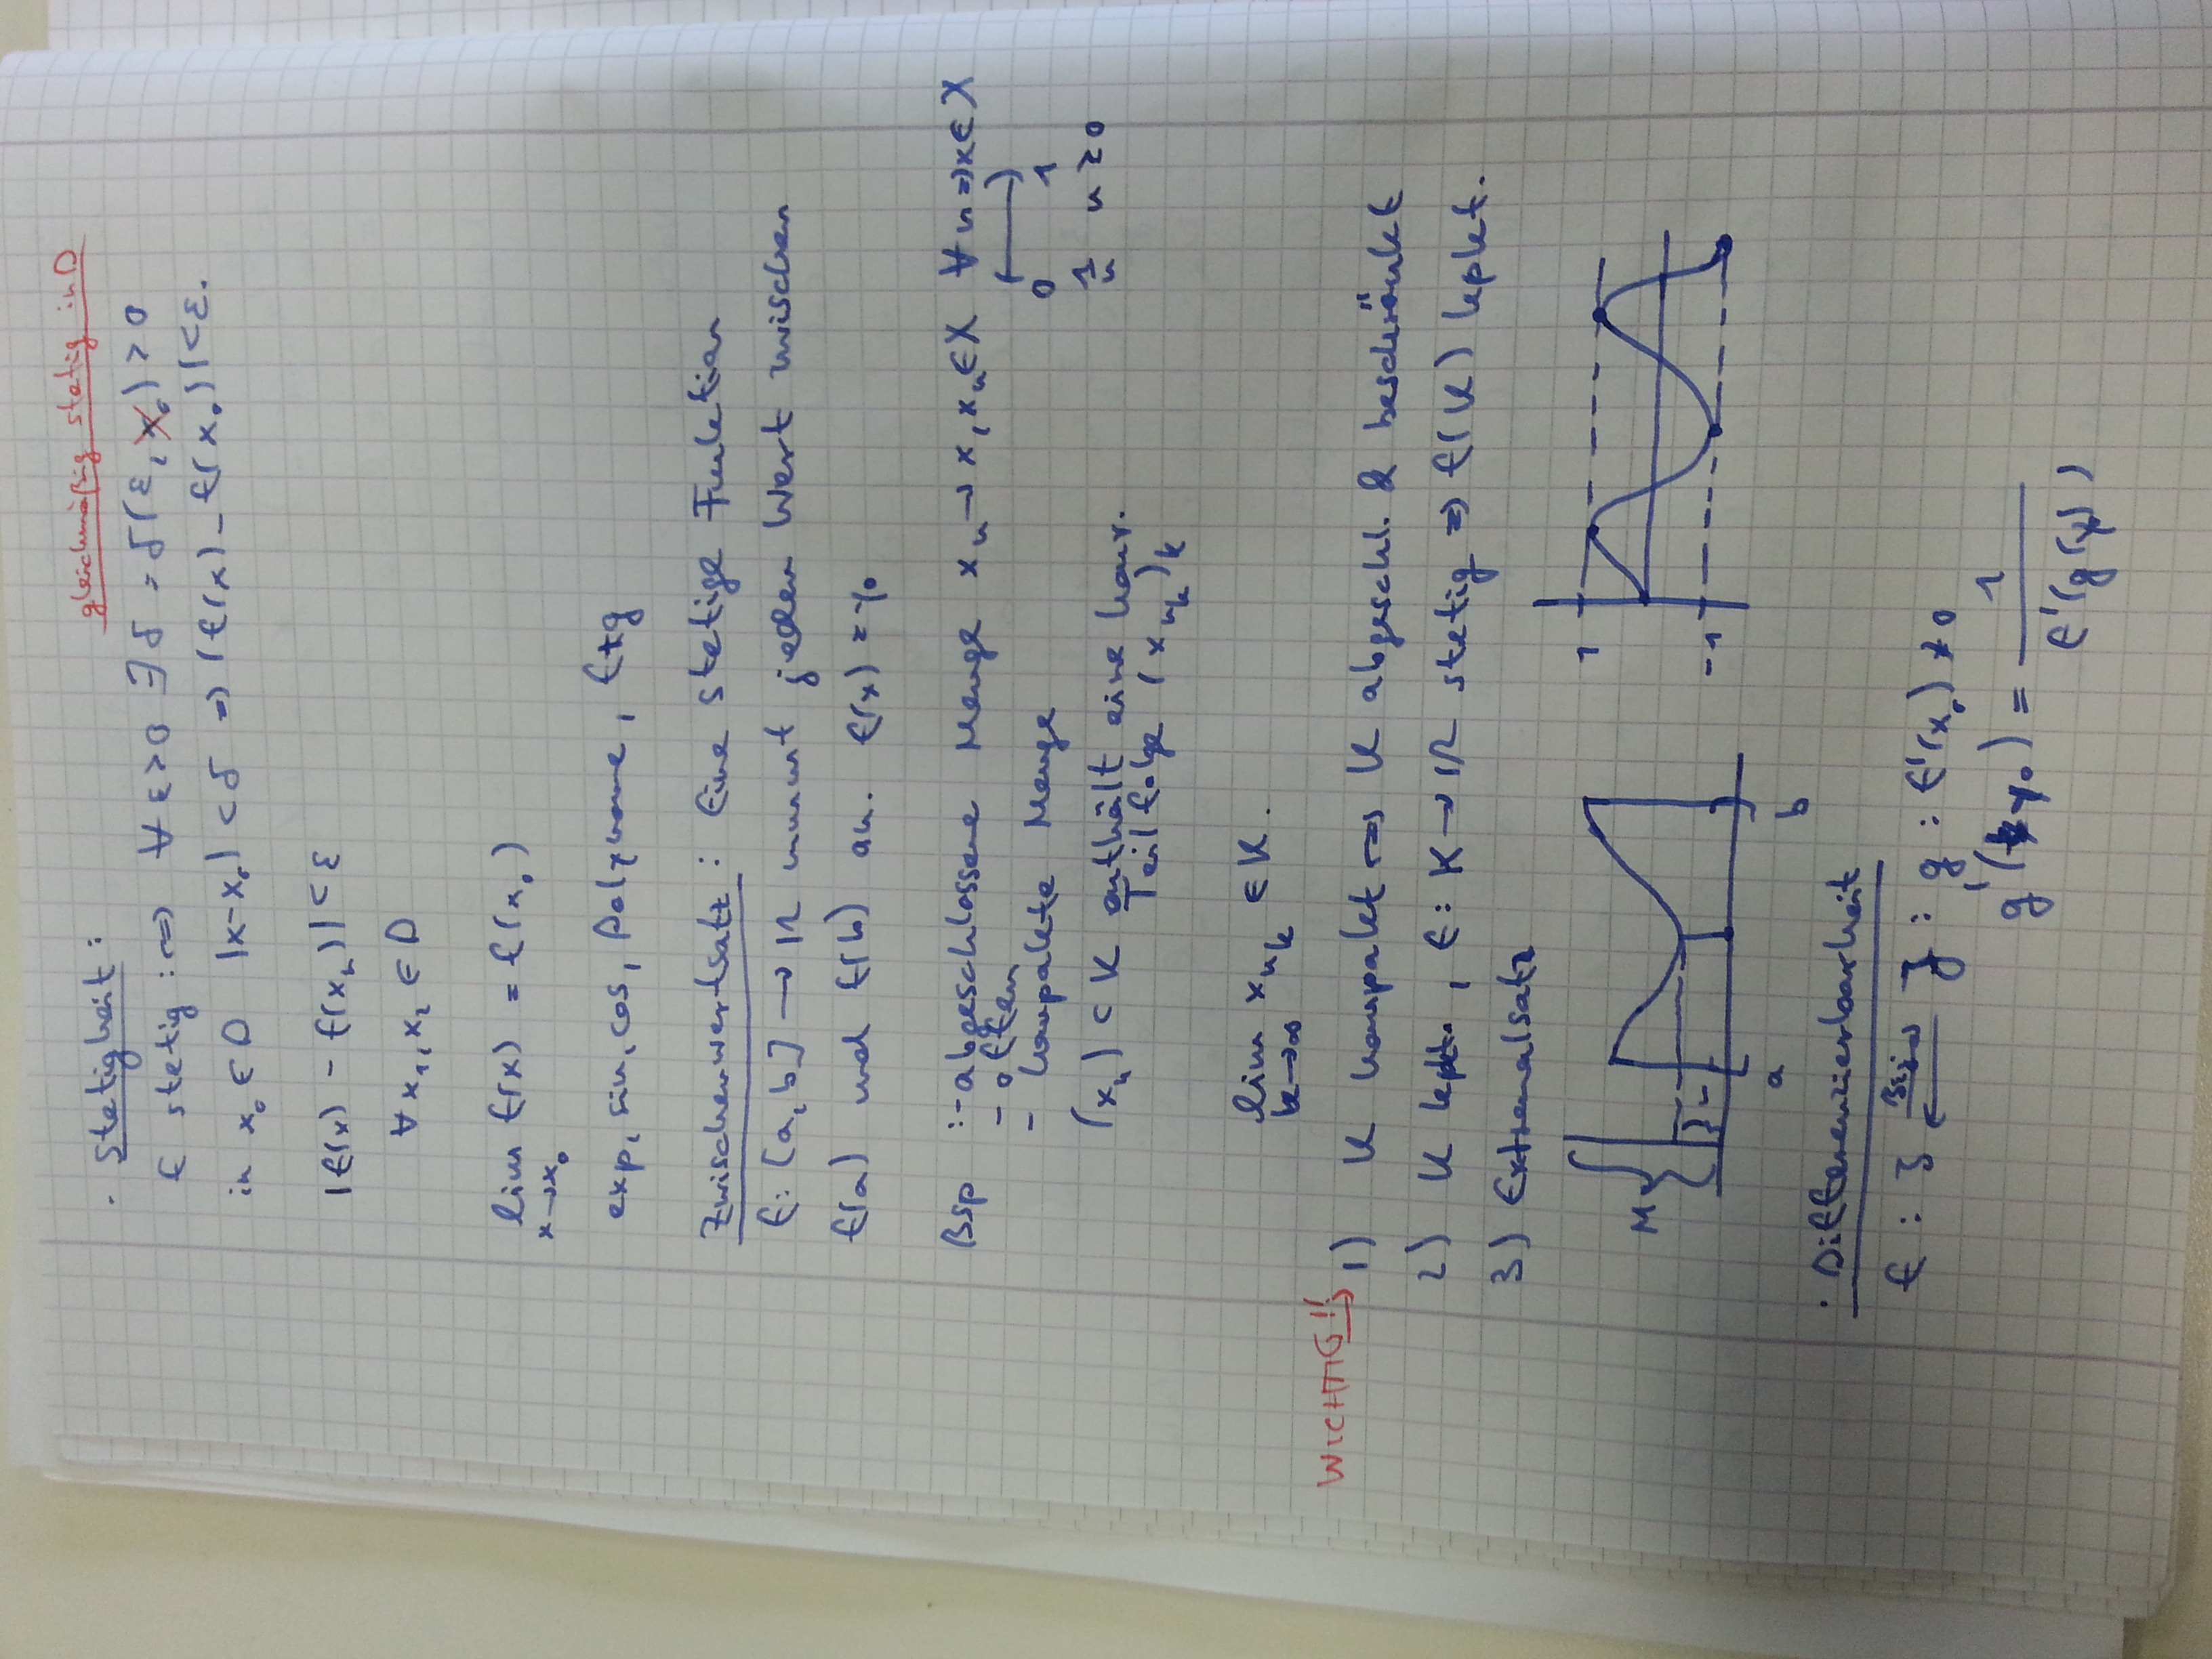 gleichmäßig stetig in D
· Stetigkeit:
f stetig :⇔ ∀ε>0 ∃δ=δ(ε,x₀)>0
in x₀∈D |x-x₀|<δ ⇒ |f(x)-f(x₀)|<ε.
|f(x)-f(x₂)|<ε
∀x₁,x₂∈D
lim f(x) = f(x₀)
x→x₀
exp, sin, cos, Polynome, f+g
Zwischenwertsatz: Eine stetige Funktion
f: [a,b] → ℝ nimmt jeden Wert zwischen
f(a) und f(b) an. f(x)=y₀
Bsp :- abgeschlossene Menge xₙ→x, xₙ∈X ∀n⇒x∈X
- offen
( )
0 1
- kompakte Menge
1/n n≥0
(xₙ)⊂K enthält eine konv.
Teilfolge (xₙₖ)ₖ
lim xₙₖ ∈K.
k→∞
WICHTIG!!
1) K kompakt ⇔ K abgeschl. & beschränkt
2) K kpkt., f: K→ℝ stetig ⇒ f(K) kpkt.
3) Extremalsatz
M
a b
1
-1
· Differenzierbarkeit
f: I Bij. J: g: f'(x₀)≠0
g'(y₀) = 1/f'(g(y))